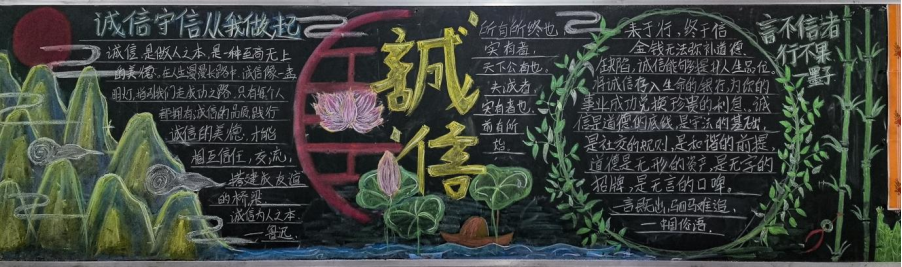 诚信守信从我做起
诚信,是做人之本,是一种至高无上
的美德。在人生漫漫长路中,诚信像一盏
明灯,指引我们走成功之路,只有每个人
都拥有诚信的品质,践行
诚信的美德,才能
相互信任,交流,
搭建成友谊
的桥梁
诚信为人之本
——鲁迅
誠信
所有所终也,
实有者,
天下公有也,
夫诚者
实有者也,
前有所
始
来于行,终于信
金钱无法弥补道德
缺陷,诚信能够提升人生品位。
将诚信存入生命的银行,为你的
事业成功兑换珍贵的利息,诚
信是道德的底线,是守法的基础,
是社交的规则,是和谐的前提,
道德是无形的资产,是无字的
招牌,是无言的口碑。
一言既出,驷马难追
——中国俗语
言不信诸
行不果
墨子